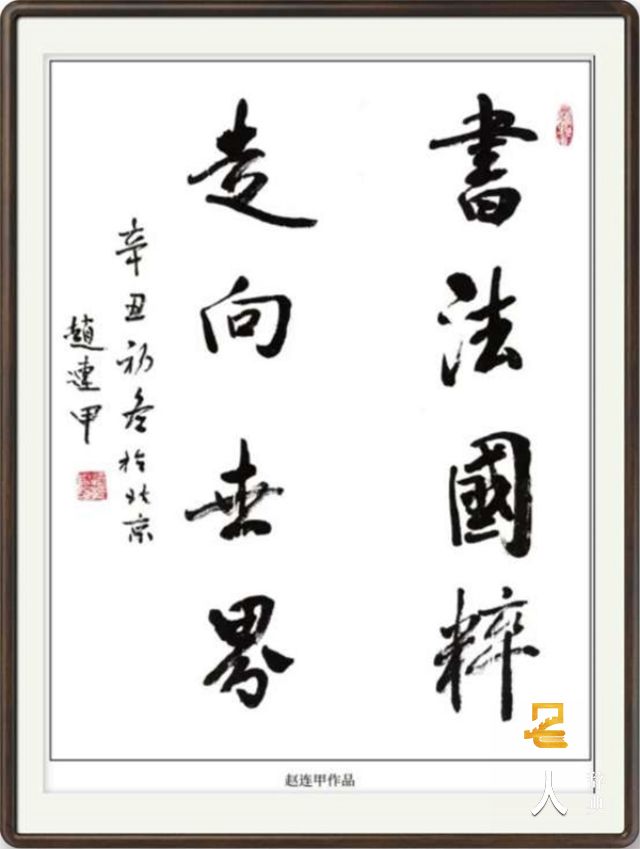 書法國粹
走向世界
辛丑初冬於北京
趙連甲
赵连甲作品
人